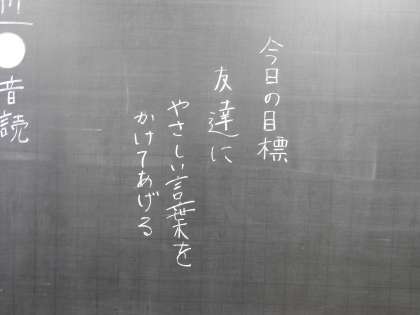 今日の目標
友達に
やさしい言葉を
かけてあげる
音読